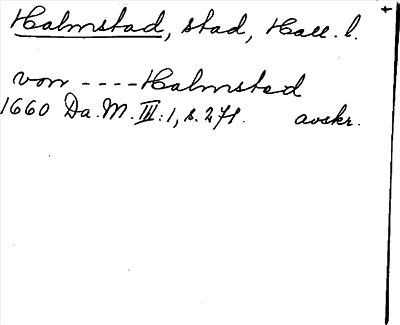 Halmstad, stad, Hall. l.
von ---- Halmsted
1660 Da. M. III:1, s. 271. avskr.